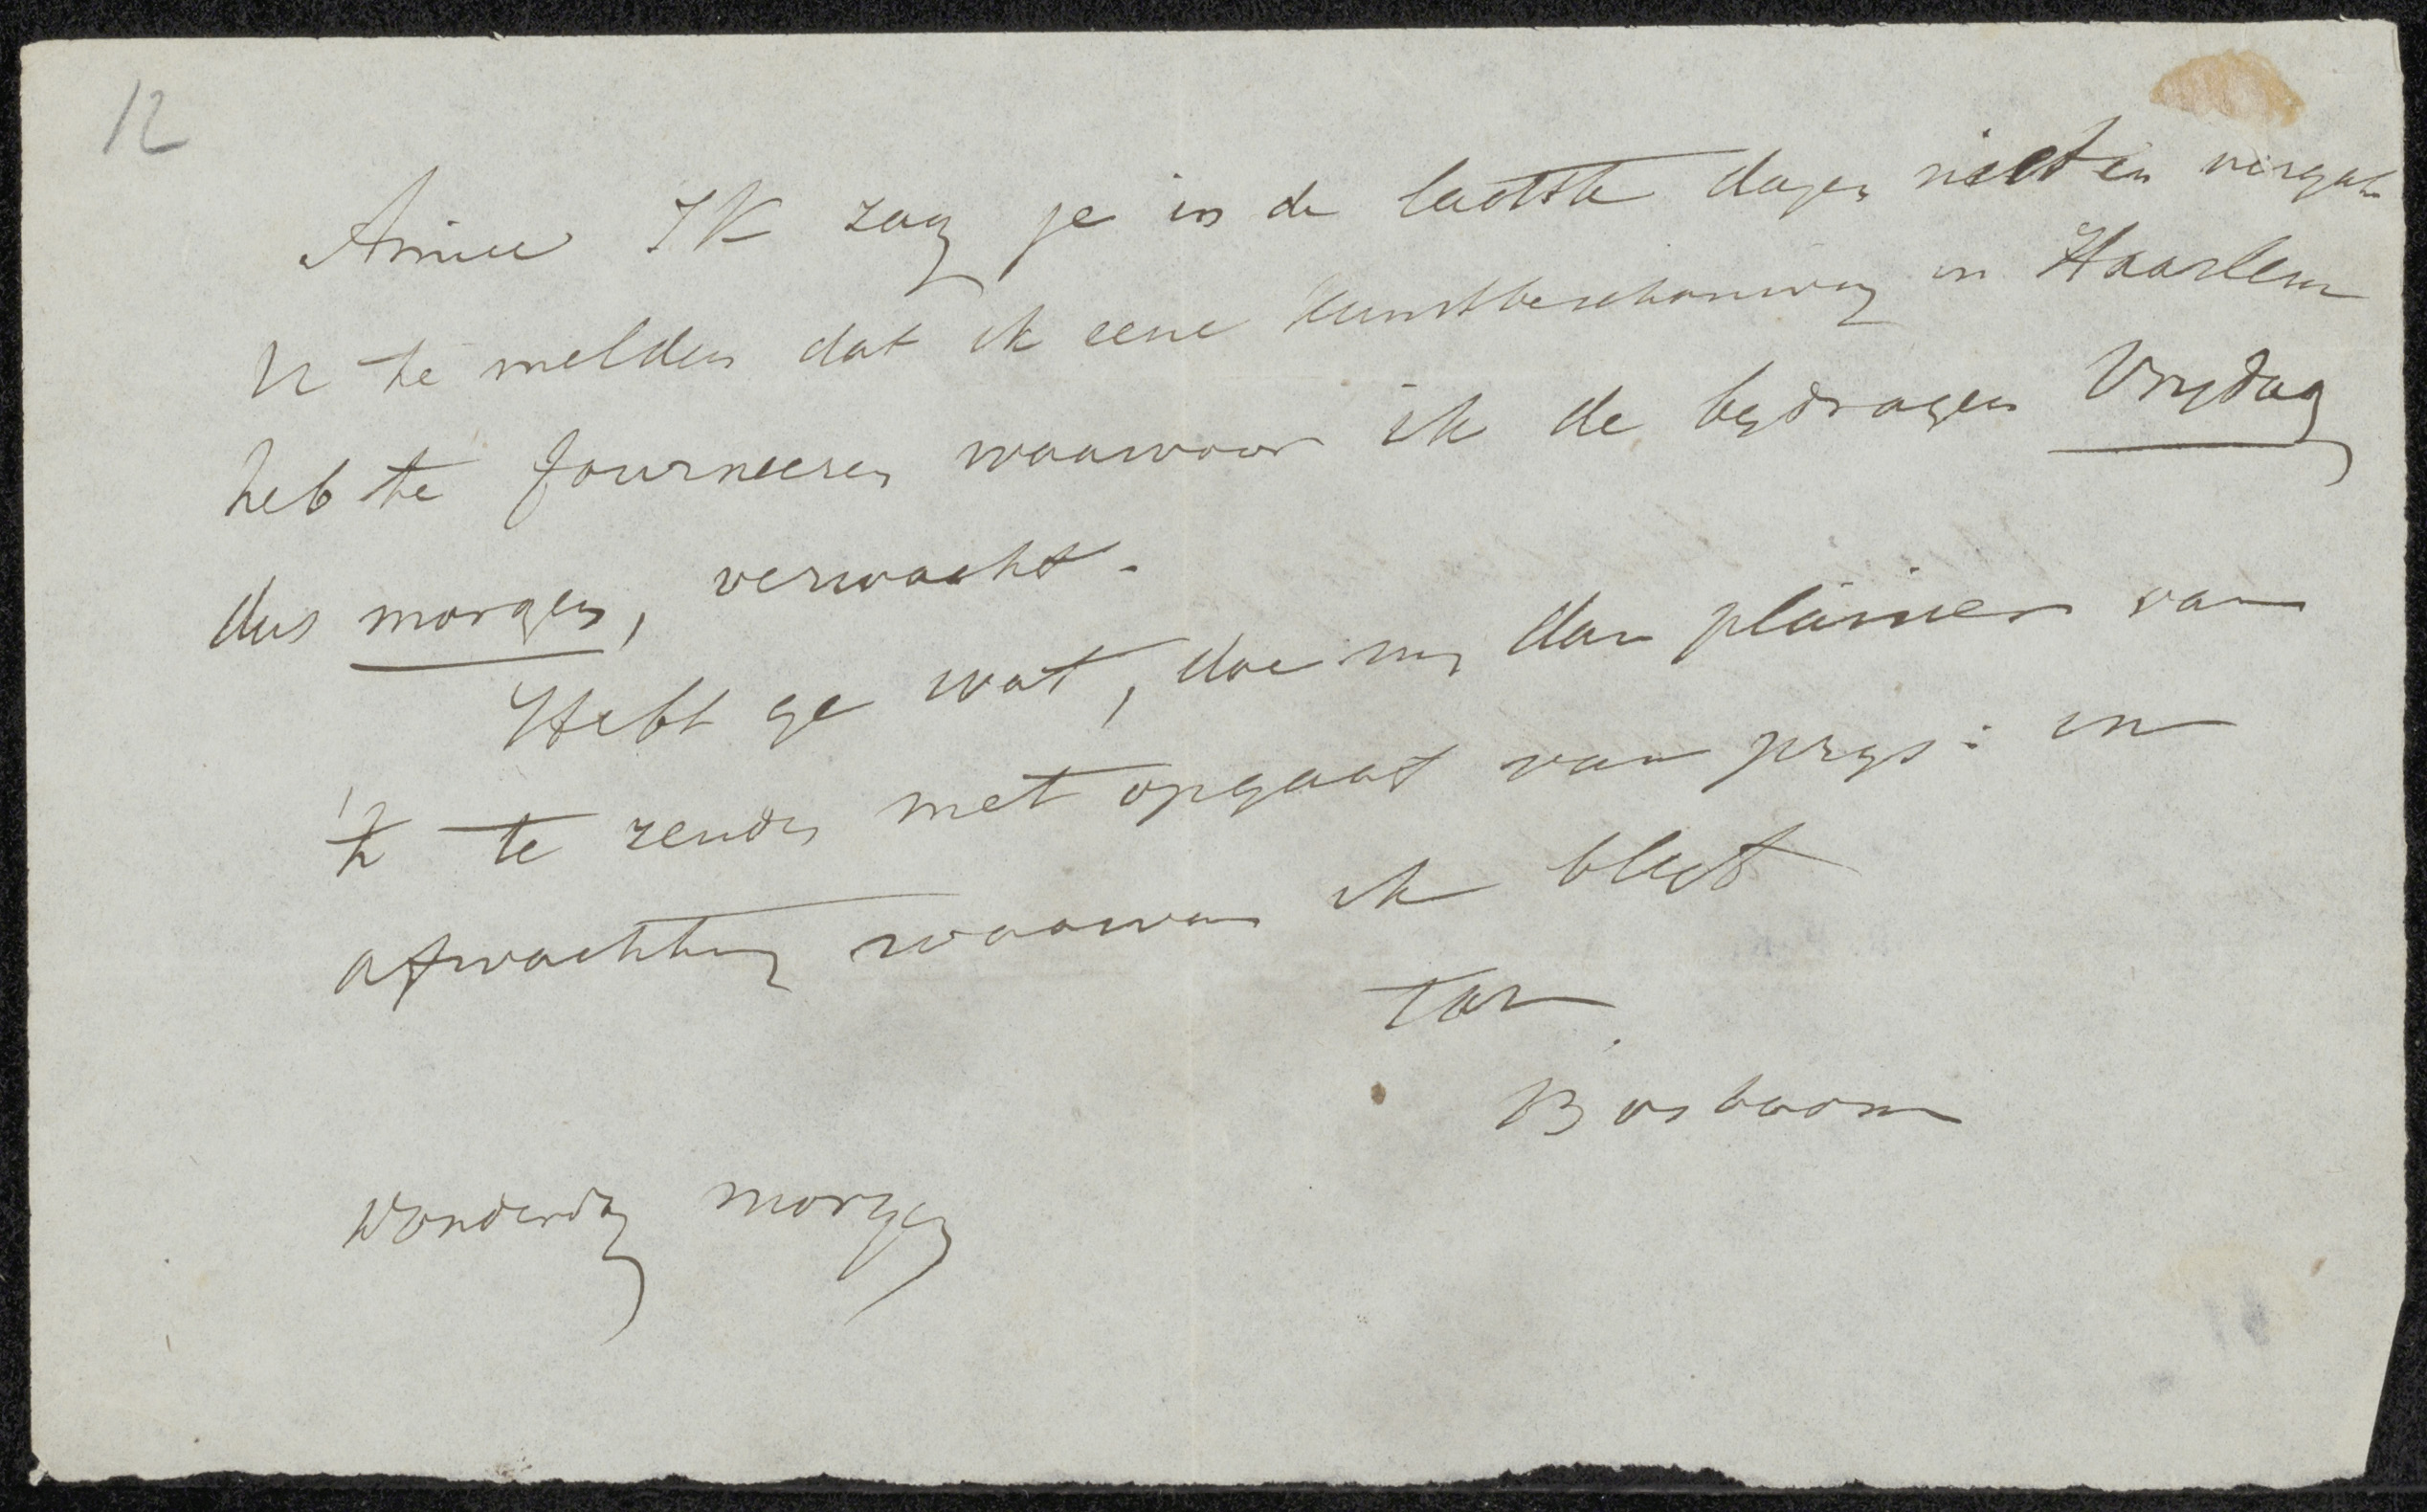 12
Amice Ik zag je in de laatste dagen niet en vergat
U te melden dat ik eene kunstbeschouwing in Haarlem
heb te fourneeren waarvoor ik de bydragen Vrydag
dus morgen, verwacht.
Hebt ge wat, doe my dan plaisier van
't te zenden met opgaat van prys: in
afwachting waarvan ik blyf
tov
Bosboom
Donderdag morgen